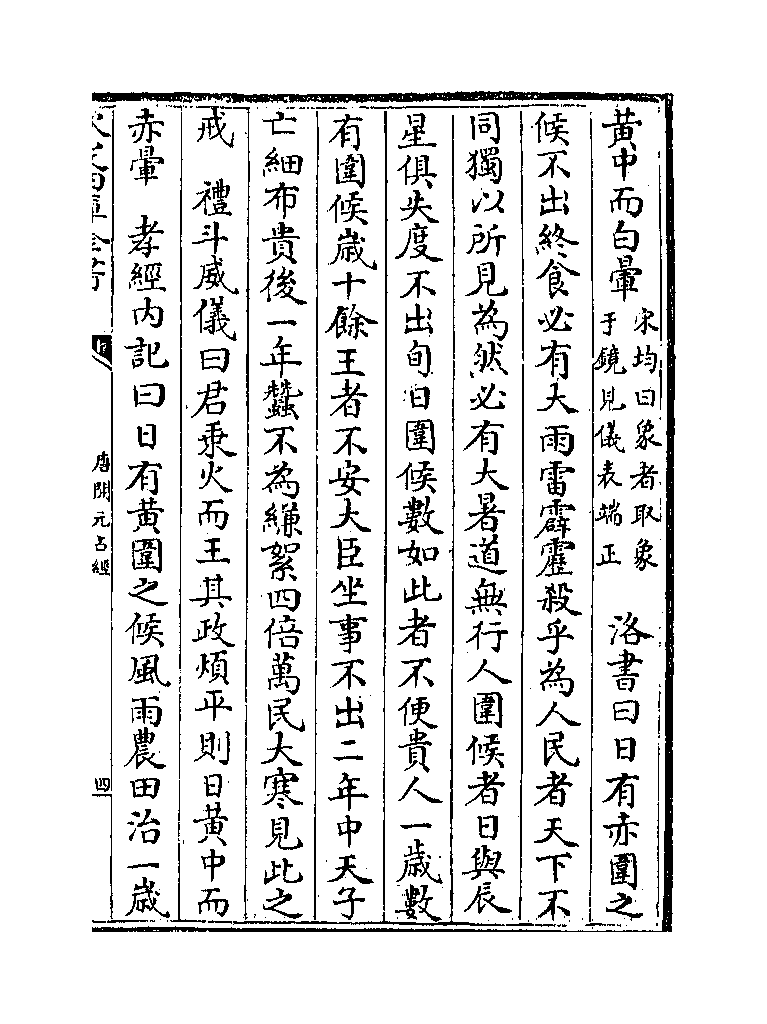 黄中而白暈宋均曰象者取象于鏡見儀表端正　洛書曰日有赤圍之
候不出終食必有大雨雷霹靂殺乎為人民者天下不
同獨以所見為然必有大暑道無行人圍候者日與辰
星俱失度不出旬日圍候數如此者不便貴人一歲數
有圍候歲十餘王者不安大臣坐事不出二年中天子
亡細布貴後一年蠶不為縑絮四倍萬民大寒見此之
戒　禮斗威儀曰君乘火而王其政煩平則日黄中而
赤暈　孝經內記曰日有黄圍之候風雨農田治一歲
唐開元占經
四